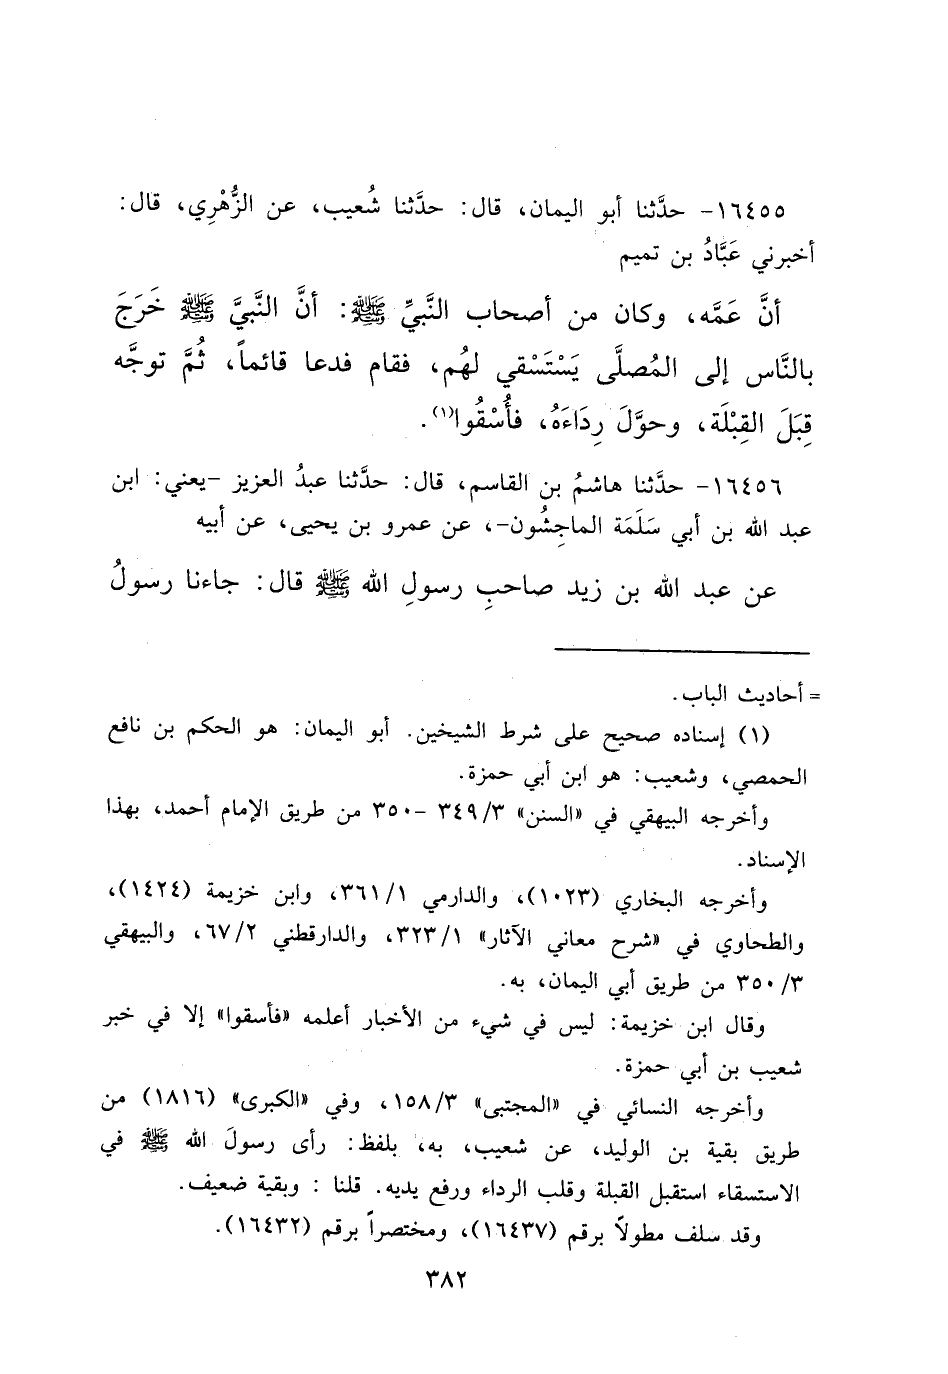 ١٦٤٥٥- حدَّثنا أبو اليمان، قال: حدَّثنا شُعيب، عن الزُّهْرِي، قال:
أخبرني عَبَّادُ بن تميم
أنَّ عَمَّه، وكان من أصحاب النَّبيِّ ﷺ: أنَّ النَّبيَّ ﷺ خَرَجَ
بالنَّاس إلى المُصلَّى يَسْتَسْقي لهُم، فقام فدعا قائماً، ثُمَّ توجَّه
قِبَلَ القِبْلَة، وحوَّلَ رِدَاءَهُ، فأُسْقُوا(١).
١٦٤٥٦- حدَّثنا هاشمُ بن القاسم، قال: حدَّثنا عبدُ العزيز -يعني: ابن
عبد الله بن أبي سَلَمَة الماجِشُون-، عن عمرو بن يحيى، عن أبيه
عن عبد الله بن زيد صاحبِ رسولِ الله ﷺ قال: جاءنا رسولُ
= أحاديث الباب.
(١) إسناده صحيح على شرط الشيخين. أبو اليمان: هو الحكم بن نافع
الحمصي، وشعيب: هو ابن أبي حمزة.
وأخرجه البيهقي في «السنن» ٣/ ٣٤٩ -٣٥٠ من طريق الإمام أحمد، بهذا
الإسناد.
وأخرجه البخاري (١٠٢٣)، والدارمي ١/ ٣٦١، وابن خزيمة (١٤٢٤)،
والطحاوي في «شرح معاني الآثار» ١/ ٣٢٣، والدارقطني ٢/ ٦٧، والبيهقي
٣/ ٣٥٠ من طريق أبي اليمان، به.
وقال ابن خزيمة: ليس في شيء من الأخبار أعلمه «فأسقوا» إلا في خبر
شعيب بن أبي حمزة.
وأخرجه النسائي في «المجتبى» ٣/ ١٥٨، وفي «الكبرى» (١٨١٦) من
طريق بقية بن الوليد، عن شعيب، به، بلفظ: رأى رسولَ الله ﷺ في
الاستسقاء استقبل القبلة وقلب الرداء ورفع يديه. قلنا : وبقية ضعيف.
وقد سلف مطولاً برقم (١٦٤٣٧)، ومختصراً برقم (١٦٤٣٢).
٣٨٢